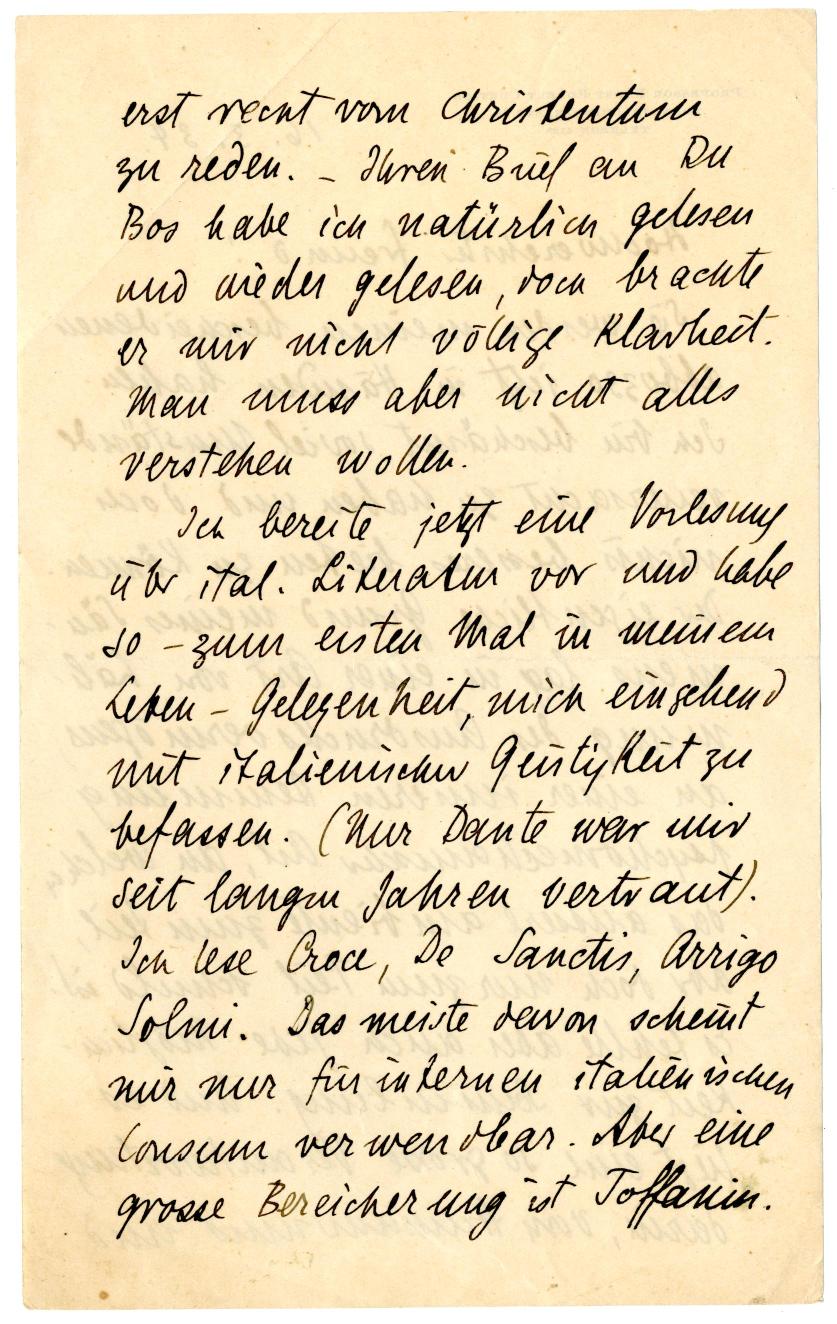 erst recht vom Christentum
zu reden. – Ihren Brief an Du
Bos habe ich natürlich gelesen
und wieder gelesen, doch brachte
er mir nicht völlige Klarheit.
Man muss aber nicht alles
verstehen wollen.
Ich bereite jetzt eine Vorlesung
über ital. Literatur vor und habe
so – zum ersten Mal in meinem
Leben – Gelegenheit, mich eingehend
mit italienischer Geistigkeit zu
befassen. (Nur Dante war mir
seit langen Jahren vertraut).
Ich lese Croce, De Sanctis, Arrigo
Solmi. Das meiste davon scheint
mir nur für internen italienischen
Consum verwendbar. Aber eine
grosse Bereicherung ist Toffanin.